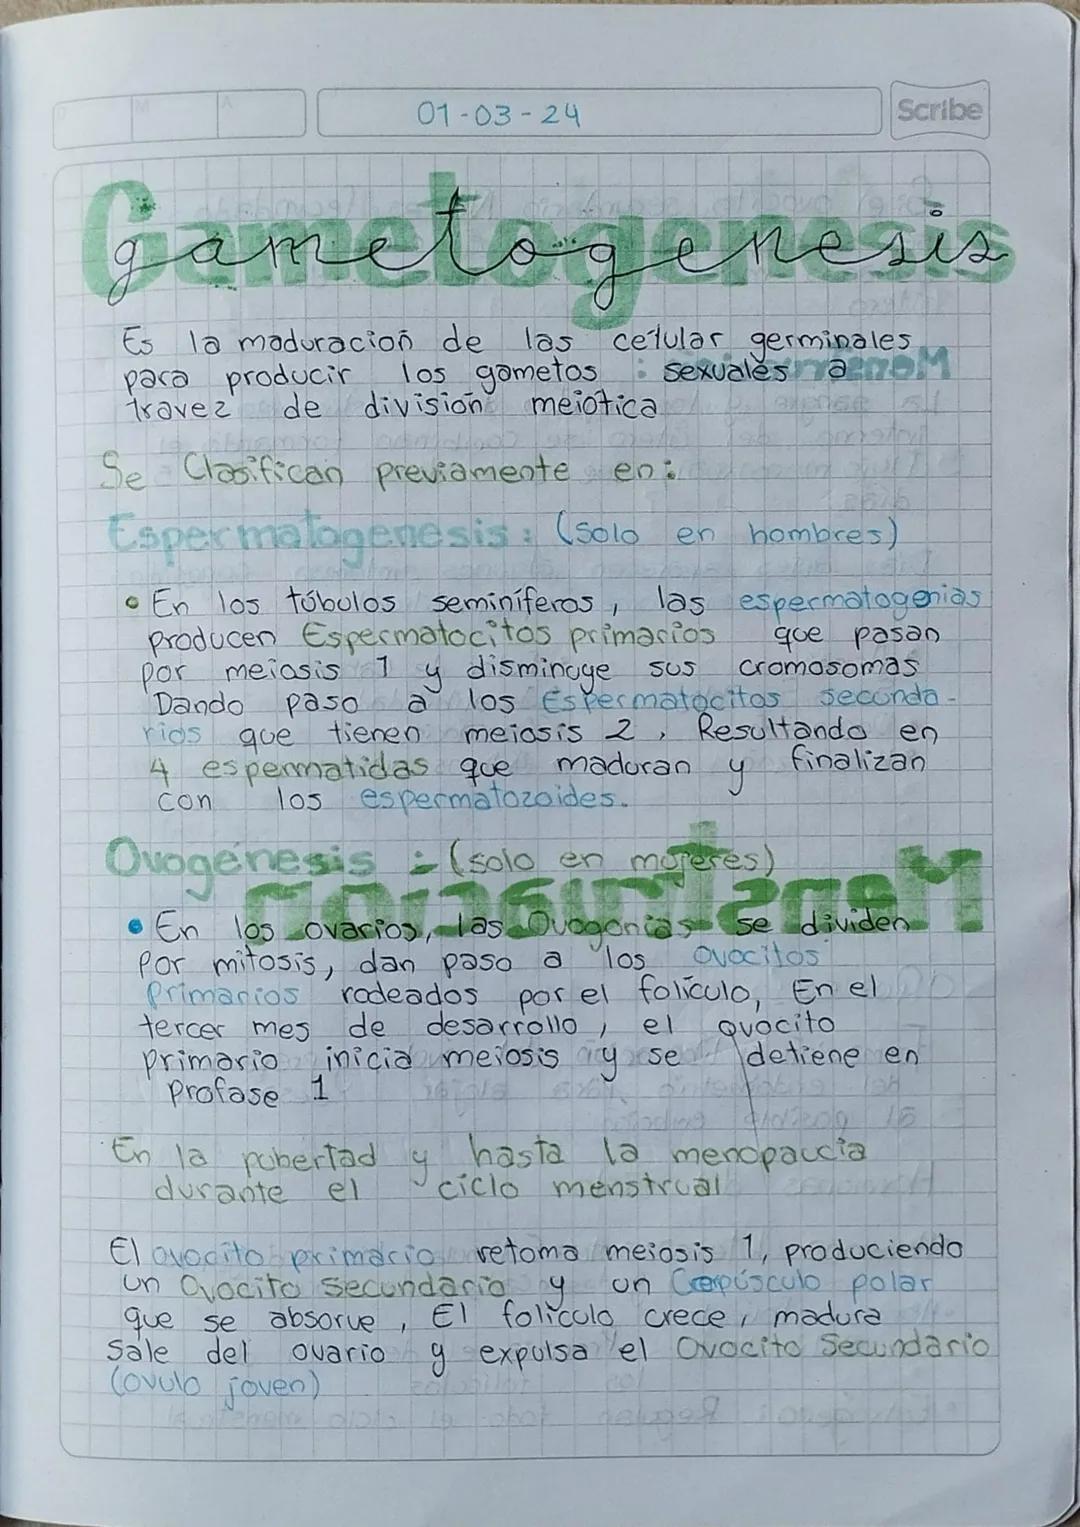 D M A
01-03-24
Scribe
Gametogenesis
gametogenesis
Es la maduración de las celular germinales
para producir los gametos : sexuales a
travez de división meiotica
Se Clasifican previamente en:
Espermatogenesis: (solo en hombres)
• En los túbulos seminíferos, las espermatogonias
producen Espermatocitos primarios que pasan
por meiosis 1 y disminuye sus cromosomas
Dando paso a los Espermatocitos secunda-
rios que tienen meiosis 2, Resultando en
4 espermatidas que maduran y finalizan
con los espermatozoides.
Ovogénesis :- (solo en mujeres)
• En los ovarios, las Ovogonias se dividen
Por mitosis, dan paso a los ovocitos
Primarios rodeados por el folículo, En el
tercer mes de desarrollo, el ovocito
primario inicia meiosis y se detiene en
Profase 1
En la pubertad y hasta la menopaucia
durante el ciclo menstrual
El ovocito primario retoma meiosis 1, produciendo
un Ovocito Secundario y un Corpúsculo polar
que se absorve, El folículo crece, madura
Sale del ovario y expulsa el Ovocito Secundario
(ovulo joven)